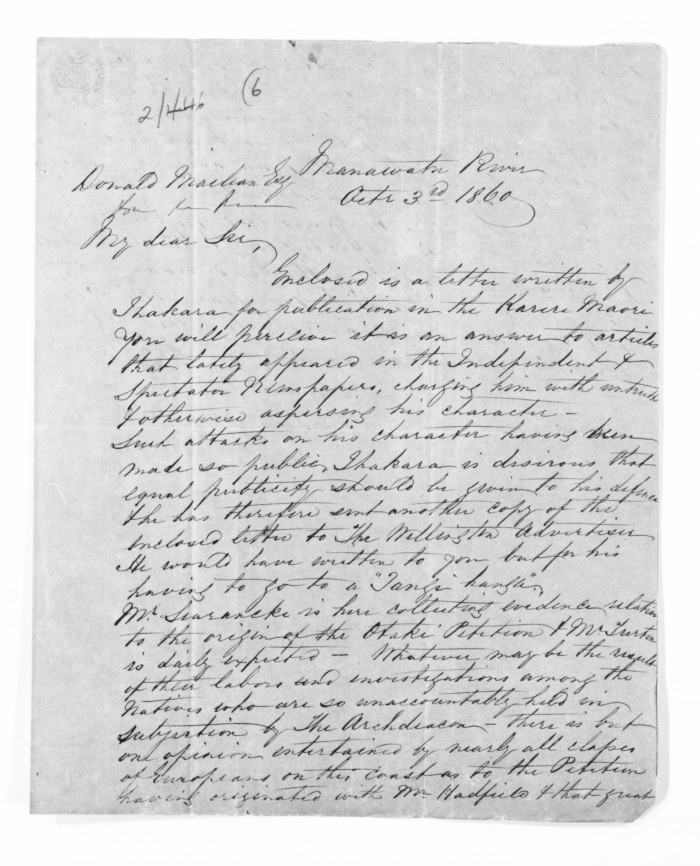 2/446 (6
Manawatu River
Donald Maclean Esq
Octr 3rd 1860
My dear Sir,
Enclosed is a letter written by
Ihakara for publication in the Karere Maori
You will perceive it is an answer to articles
that lately appeared in the Independent &
Spectator Newspapers, charging him with untruth
& otherwise aspersing his character –
Such attacks on his character having been
made so public, Ihakara is desirous that
equal publicity should be given to his defence
& he has therefore sent another copy of the
enclosed letter to The Wellington Advertiser
He would have written to you but for his
having to go to a "Tangi hanga",
Mr Searancke is here collecting evidence relation
to the origin of the Otaki Petition & Mr Turton
is daily expected – Whatever may be the results
of their labors and investigations among the
Natives who are so unaccountably held in
subjection by The Archdeacon – there is but
one opinion entertained by nearly all classes
of Europeans on this coast as to the Petition
having originated with Mr Hadfield & that great